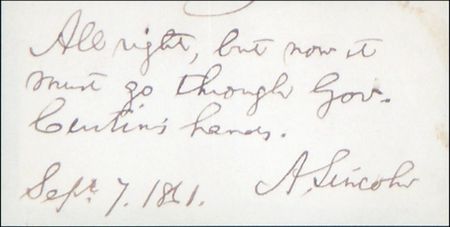 All right, but now it
must go through Gov.
Curtin's hands.
Sept. 7. 1861.  A. Lincoln